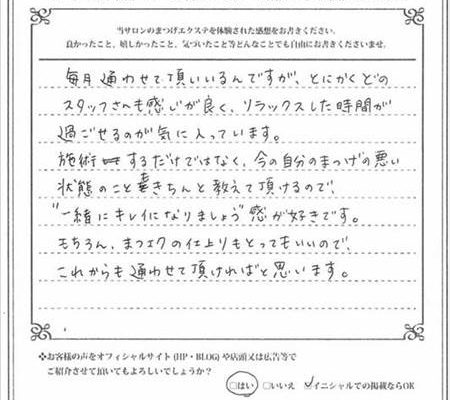 当サロンのまつげエクステを体験された感想をお書きください。
良かったこと、嬉しかったこと、気づいたこと等どんなことでも自由にお書きくださいませ。
毎月通わせて頂いいるんですが、とにかくどの
スタッフさんも感じが良く、リラックスした時間が
過ごせるのが気に入っています。
施術するだけではなく、今の自分のまつげの悪い
状態のこときちんと教えて頂けるので、
"一緒にキレイになりましょう"感が好きです。
もちろん、まつエクの仕上りもとってもいいので、
これからも通わせて頂ければと思います。
❖お客様の声をオフィシャルサイト(HP・BLOG)や店頭又は広告等で
ご紹介させて頂いてもよろしいでしょうか？
□はい □いいえ ✓イニシャルでの掲載ならOK